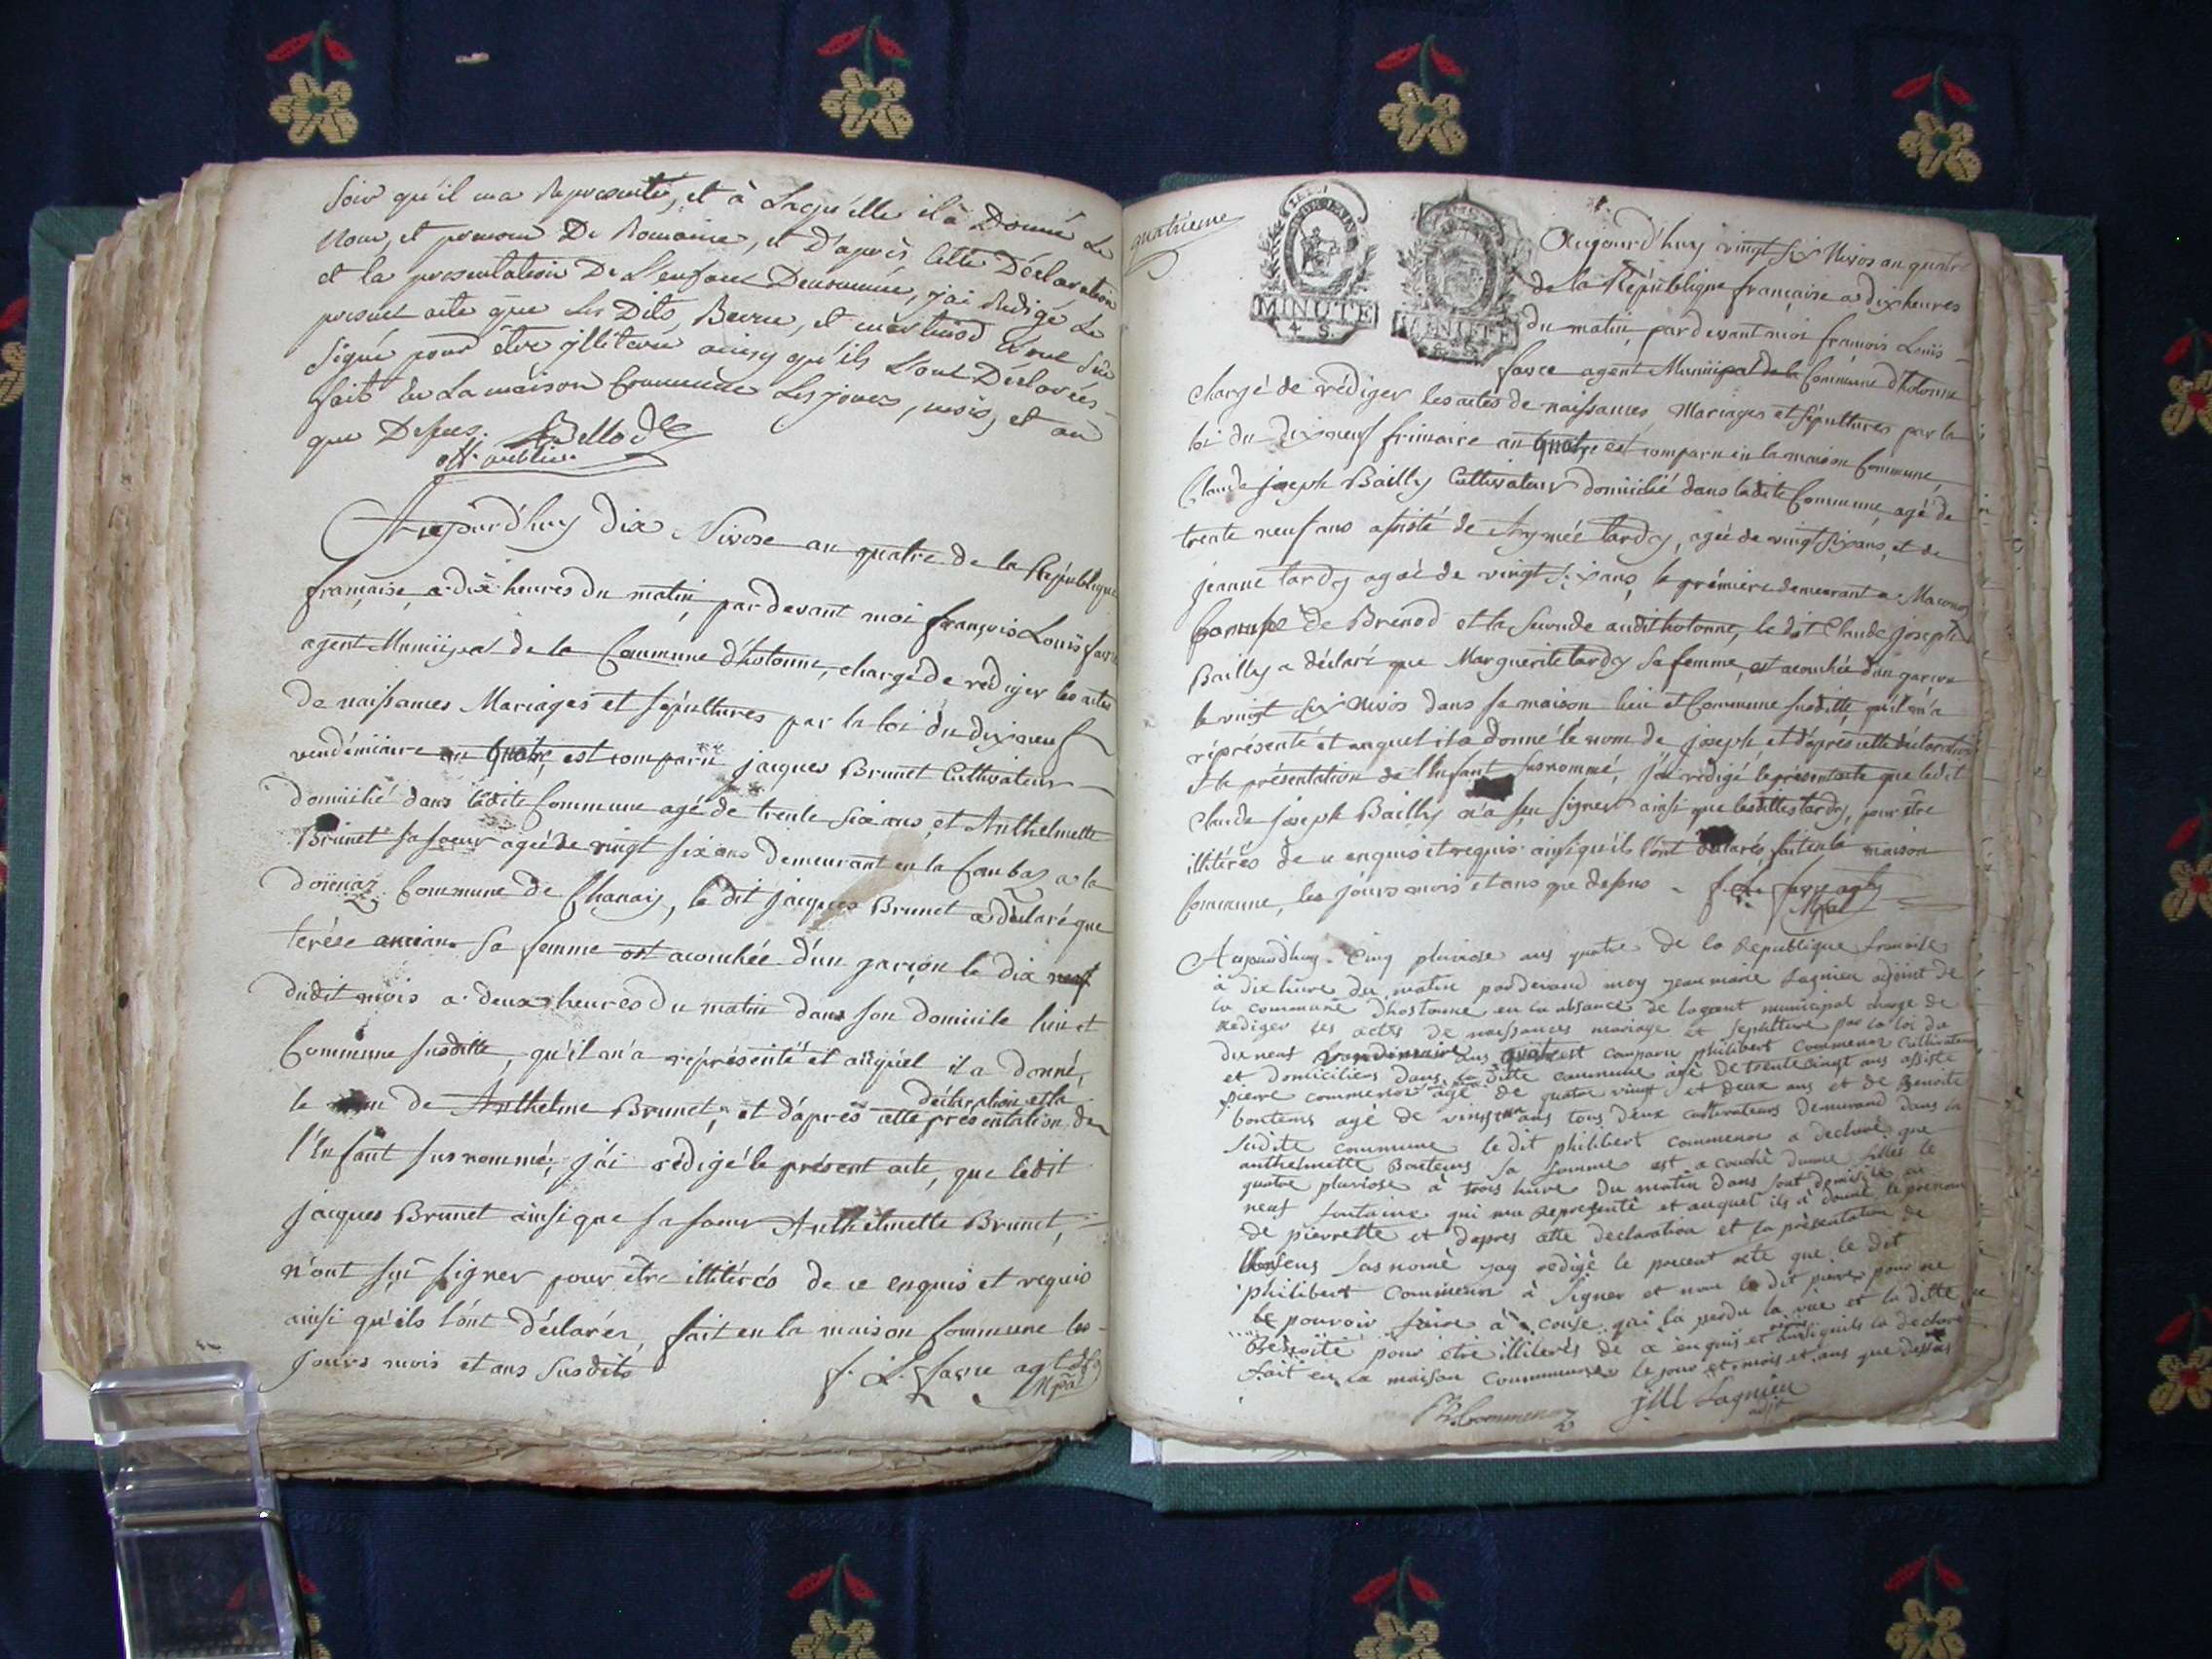 soir qu'il ma Représenté, et à Laquelle il à Donné Le
Nom, et prenom De Romaine, et D'après Cette Déclaration
et la presentation De L'enfant Denommée, j'ai Rédigé Le
présent acte que Les Dits, et n'ont Sçu
Signé pour être illiteré ainsy qu'ils L'ont Déclarées
fait en La maison Commune Les jours, mois, et an
que Dessus. Bellod
off. public.
Aujourd'huy dix Nivose an quatre de la République
française, a dix heures du matin, par devant moi françois Louïs favre
agent Municipal de la Commune d'hotonne, chargé de rédiger les actes
de naissances Mariages et sépultures par la loi du dix neuf
vendémiaire an quatre, est comparu jacques Brunet Cultivateur
domicilié dans ladite Commune agé de trente six ans, et Anthelmette
Brunet sa soeur agée de vingt six ans demeurant en la Combaz a la
doïenaz Commune de Chanay, le dit jacques Brunet a déclaré que
terése ancian sa femme est acouchée d'un garçon le dix neuf
dudit mois a deux heures du matin dans son domicile lieu et
Commune susditte, qu'il m'a réprésenté et auquel il a donné,
le nom de Anthelme Brunet, et d'après cette déclaration et la présentation de
l'Enfant susnommé, j'ai rédigé le présent acte, que ledit
jacques Brunet ainsi que sa soeur Anthelmette Brunet,
n'ont sçu signer pour être illitérés de ce enquis et requis
ainsi qu'ils l'ont déclarés, fait en la maison Commune les
jours mois et ans susdits f. L. favre agt
Mpal
quatrieme
MINUTE
4. S.
MINUTE
Aujourd'huy vingt six Nivos an quatre
de la République française a dix heures
du matin, pardevant moi francois Louïs
favre agent Municipal de la Commune d'hotonne
chargé de rédiger les actes de naissances Mariages et sépultures par la
loi du dix neuf frimaire an quatre est comparu en la maison Commune,
Claude joseph Bailly Cultivateur domicilié dans ladite Commune, agé de
trente neuf ans assisté de Aymée tardy, agée de vingt six ans, et de
jeanne tardy agée de vingt six ans, la prémiere demeurant a Maconod
de Brenod et la seconde audit hotonne, le dit Claude joseph
Bailly a déclaré que Marguerite tardy sa femme, est acouchée d'un garçon
le vingt six Nivos dans sa maison, lieu et Commune susditte, qu'il m'a
réprésenté et auquel il a donné le nom de joseph, et d'après cette déclaration
et la présentation de l'Enfant susnommé, j'ai rédigé le présent acte que ledit
Claude joseph Bailly n'a sçu signer ainsi que lesdittes tardy, pour être
illitérés de ce enquis et requis ainsi qu'ils l'ont déclarés, fait en la maison
Commune, les jours mois et ans que dessus f. L. favre agt
Mpal
Aujourdhuy Cinq pluviose ans quatre de la République francoise
à dix hure du matin pardevand moy jean marie Lagnieu adjoint de
la commune Dhostonne en la absance de lagent municipal charge de
Rediger les actes de naissances mariage et sepulture par la loi du
du neuf ans quatre est comparu philibert Commenoz Cultivateur
et domicilies dans la ditte commune agè de trente Cinqt ans assiste
pierre commenoz agé de quatre vingt et deux ans et de Benoite
bontems agé de ans tous deux cultivateurs demurand dans la
sudite commune le dit philibert Commenoz a declaré que
anthelmette Bontems sa femme est a couchè dunne filles le
quatre pluviose à trois hure du matin dans sont domisile au
neuf fontaine qui ma Représenté et auquel ils à donné le prenom
de pierrette et dapres cette declaration et la présentation de
sus nomè jay redigè le precent acte que le dit
philibert Commenoz à signer et non le dit pierre pour ne
le pouvoir faire à couse qui la perdu la vue et la ditte
Benoite pour etre illiterés de ce enquis et ainsi quils la declore
fait en la maison Commune le jour et mois et ans que dessus
Commenoz JM Lagnieu
adjt